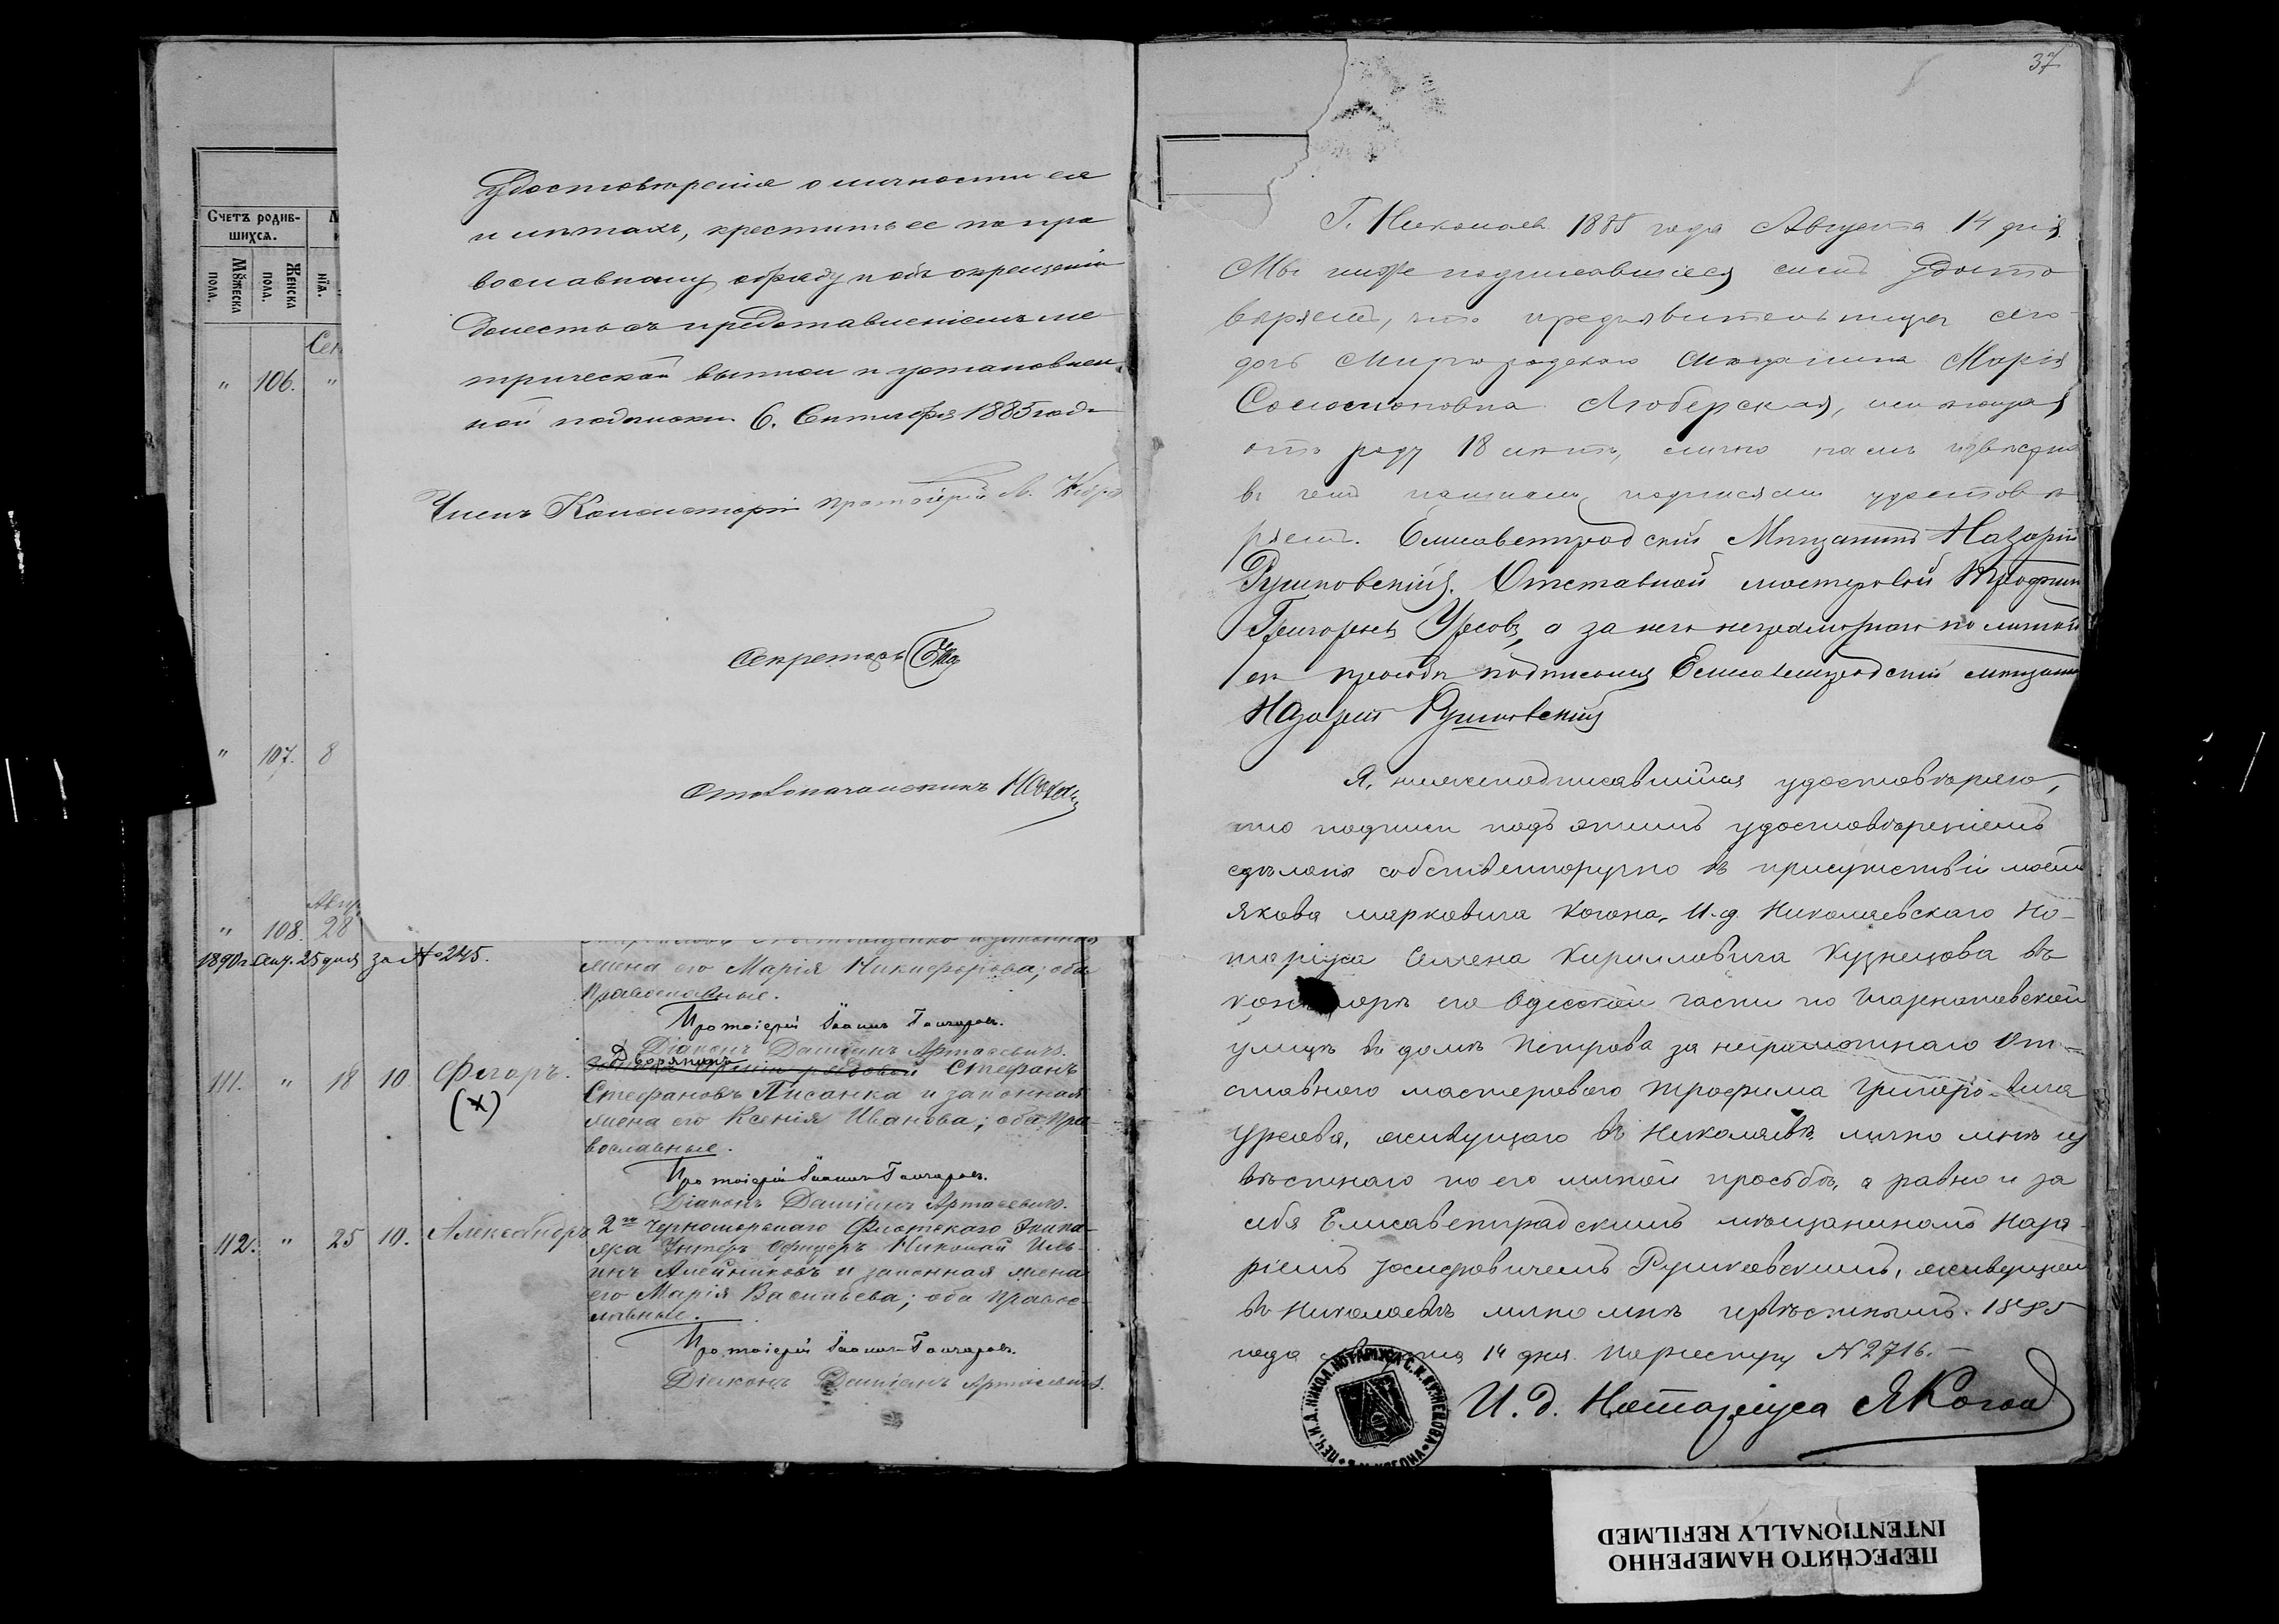 Удостовѣренія о личности ея
и лѣтахъ, крестить ее по пра
вославному обряду и объ окрещеніи
донесть съ представленіемъ ме
трической выписи и установлен
ной подписки 6. Сентября 1885 года
Членъ Консисторіи Протоіерей
Секретарь
Столоначальникъ
Счетъ родив-
шихся.
Мужеска
пола.
Женска
пола.
нія.
Сен
" 106. "
" 107. 8
Авгу
" 108. 28
1890 г. Сент. 25 дня за № 245.
жена его Марія Никифорова; оба
православные.
Протоіерей Іоаннъ Гончаровъ.
Діаконъ Даміанъ Артасевичъ.
111. " 18 10. Ѳеоргъ.
(х)
Дворянинъ
Стефанъ
Стефановъ Писанка и законная
жена его Ксенія Иванова; оба пра-
вославные.
Протоіерей Іоаннъ Гончаровъ.
Діаконъ Даміанъ Артасевичъ.
112. " 25 10. Александръ
2го Черноморскаго Флотскаго Экипа-
жа Унтеръ Офицеръ Николай Иль-
инъ Алейниковъ и законная жена
его Марія Васильева; оба правос-
лавные.
Протоіерей Іоаннъ Гончаровъ.
Діаконъ Даміанъ Артасевичъ.
37
Г. Николаевъ 1885 года Августа 14 дня.
Мы ниже подписавшіеся симъ удосто
вѣряемъ, что предъявительница сего
дочь Миргородскаго мѣщанина Марія
Соломоновна Люберская, имѣющая
отъ роду 18 лѣтъ, лично намъ извѣстна
въ чемъ нашими подписями удостовѣ
ряемъ. Елисаветградскій Мѣщанинъ Назарій
Рушковскій. Отставной мастеровой Трофимъ
Григорьевъ Уресовъ, а за него неграмотнаго по личной
его просьбѣ подписался Елисаветградскій мѣщанин
Назарій Рушковскій
Я, нижеподписавшійся удостовѣряю,
что подписи подъ этимъ удостовѣреніемъ
сдѣланы собственноручно въ присутствіи моемъ
Якова Марковича Когона, И. д. Николаевскаго Но-
таріуса Семена Кирилловича Кузнецова въ
его Одесской части по
улицѣ въ домѣ Петрова за неграмотнаго От-
ставного мастерового Трофима Григорьевича
Уресова, живущаго въ Николаевѣ, лично мнѣ из
вѣстнаго по его личной просьбѣ, а равно и за
себя Елисаветградскимъ мѣщаниномъ Наза-
ріемъ Іосифовичемъ Рушковскимъ, живущимъ
въ Николаевѣ лично мнѣ извѣстнымъ. 1885
года Августа 14 дня. По реестру № 2716.-
И. д. Нотаріуса Я Когон
ПЕЧ. И. Д. НИКОЛ. НОТАРІУСА С. К. КУЗНЕЦОВА
ПЕРЕСНЯТО НАМЕРЕННО
INTENTIONALLY REFILMED